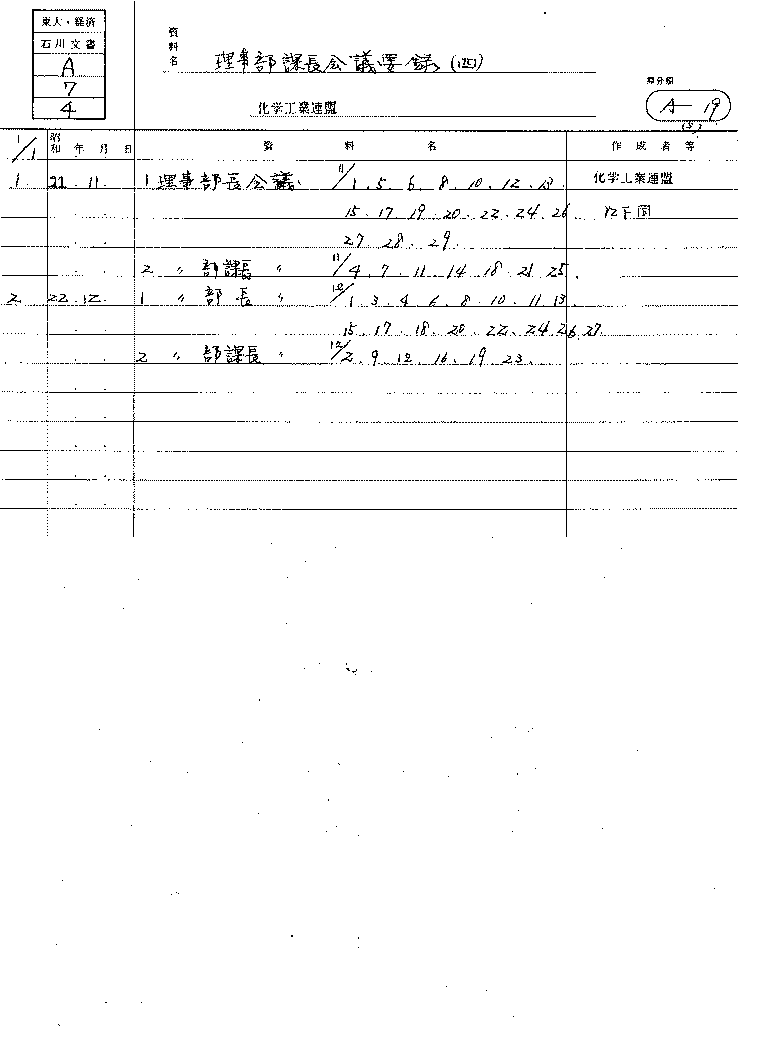 東大・経済
石川文書
A
7
4
資料名 理事部課長会議要録(四)
化学工業連盟
原分類
A-19
(5)
1/1 昭和 年 月 日 資 料 名 作 成 者 等
1 22. 11. 1 理事部長会議. 11/1. 5. 6. 8. 10. 12. 13. 化学工業連盟
15. 17. 19. 20. 22. 24. 26 以下同
27. 28. 29.
2 〃 部課長 〃 11/4. 7. 11. 14. 18. 21. 25.
2 22. 12. 1 〃 部長 〃 12/1. 3. 4. 6. 8. 10. 11. 13.
15. 17. 18. 20. 22. 24. 26. 27
2 〃 部課長 〃 12/2. 9. 12. 16. 19. 23.